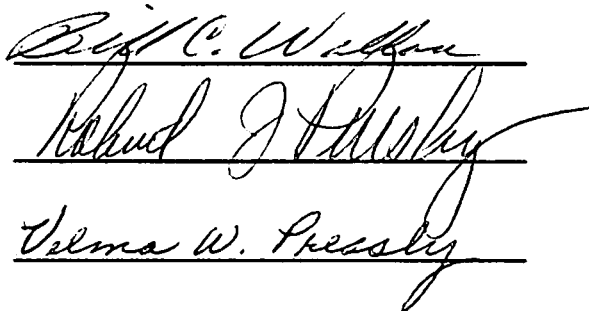 Bill C. Walker
Robert J Pressly
Velma W. Pressly